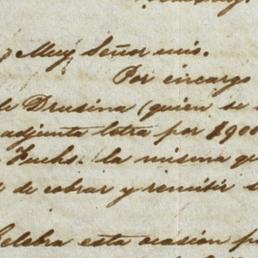 Muy Señor mio.
Por encargo
de Drusina (quien se
adjunta letra por $900
Fuchs. la misma q
de cobrar y remitir s
Celebra esta ocasión p